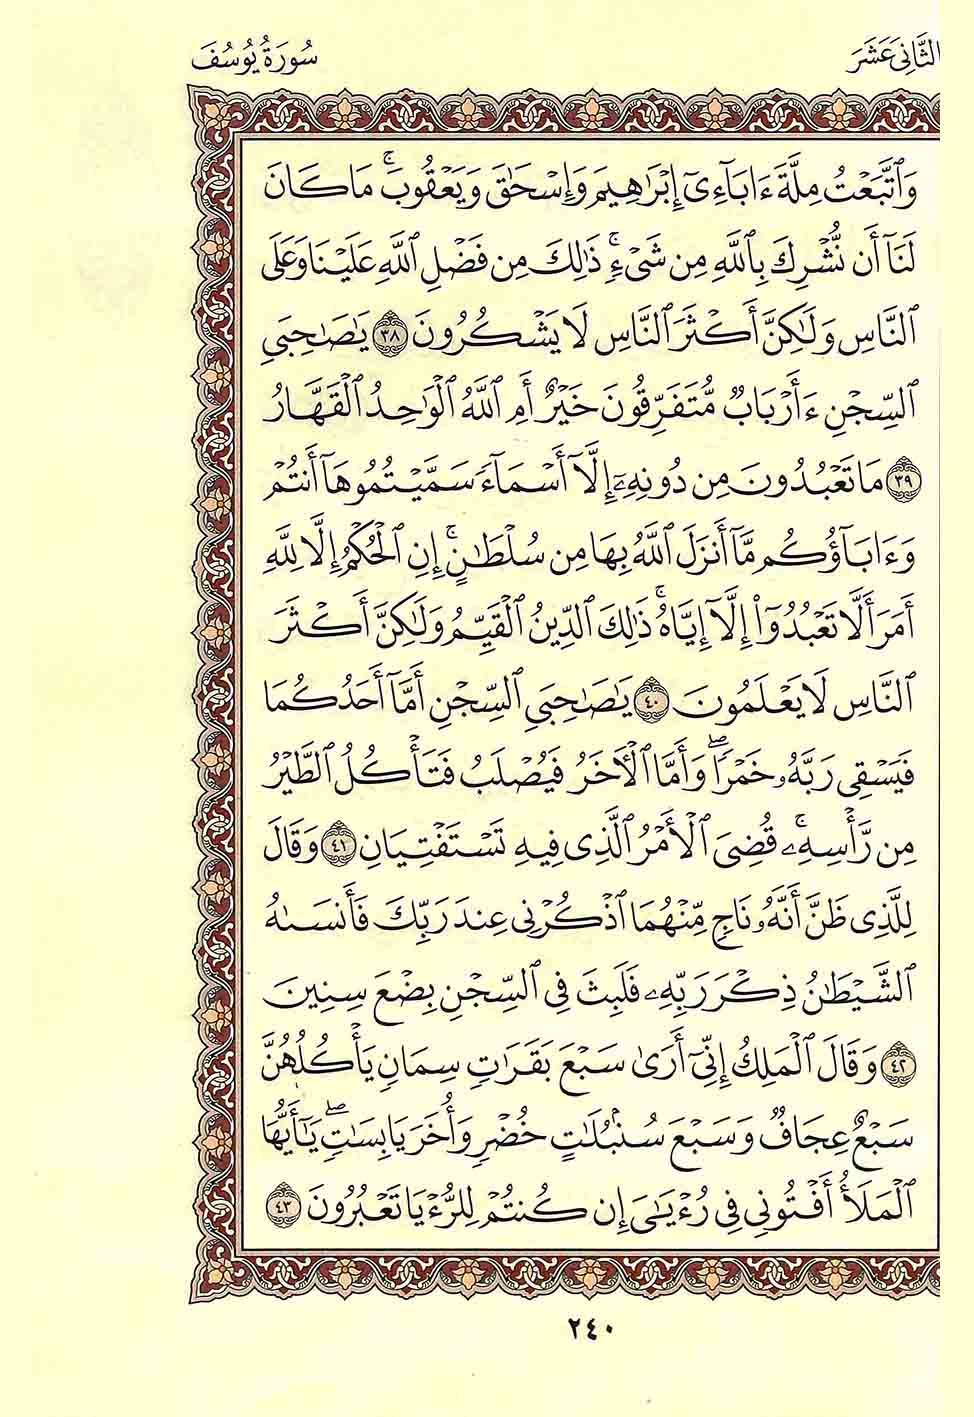 الثَّانِي عَشَرَ
سُورَةُ يُوسُفَ
وَٱتَّبَعْتُ مِلَّةَ ءَابَآءِىٓ إِبْرَٰهِيمَ وَإِسْحَٰقَ وَيَعْقُوبَ ۚ مَا كَانَ
لَنَآ أَن نُّشْرِكَ بِٱللَّهِ مِن شَىْءٍ ۚ ذَٰلِكَ مِن فَضْلِ ٱللَّهِ عَلَيْنَا وَعَلَى
ٱلنَّاسِ وَلَٰكِنَّ أَكْثَرَ ٱلنَّاسِ لَا يَشْكُرُونَ ٣٨ يَٰصَٰحِبَىِ
ٱلسِّجْنِ ءَأَرْبَابٌ مُّتَفَرِّقُونَ خَيْرٌ أَمِ ٱللَّهُ ٱلْوَٰحِدُ ٱلْقَهَّارُ
٣٩ مَا تَعْبُدُونَ مِن دُونِهِۦٓ إِلَّآ أَسْمَآءً سَمَّيْتُمُوهَآ أَنتُمْ
وَءَابَآؤُكُم مَّآ أَنزَلَ ٱللَّهُ بِهَا مِن سُلْطَٰنٍ ۚ إِنِ ٱلْحُكْمُ إِلَّا لِلَّهِ
أَمَرَ أَلَّا تَعْبُدُوٓا۟ إِلَّآ إِيَّاهُ ۚ ذَٰلِكَ ٱلدِّينُ ٱلْقَيِّمُ وَلَٰكِنَّ أَكْثَرَ
ٱلنَّاسِ لَا يَعْلَمُونَ ٤٠ يَٰصَٰحِبَىِ ٱلسِّجْنِ أَمَّآ أَحَدُكُمَا
فَيَسْقِى رَبَّهُۥ خَمْرًا ۖ وَأَمَّا ٱلْءَاخَرُ فَيُصْلَبُ فَتَأْكُلُ ٱلطَّيْرُ
مِن رَّأْسِهِۦ ۚ قُضِىَ ٱلْأَمْرُ ٱلَّذِى فِيهِ تَسْتَفْتِيَانِ ٤١ وَقَالَ
لِلَّذِى ظَنَّ أَنَّهُۥ نَاجٍ مِّنْهُمَا ٱذْكُرْنِى عِندَ رَبِّكَ فَأَنسَىٰهُ
ٱلشَّيْطَٰنُ ذِكْرَ رَبِّهِۦ فَلَبِثَ فِى ٱلسِّجْنِ بِضْعَ سِنِينَ
٤٢ وَقَالَ ٱلْمَلِكُ إِنِّىٓ أَرَىٰ سَبْعَ بَقَرَٰتٍ سِمَانٍ يَأْكُلُهُنَّ
سَبْعٌ عِجَافٌ وَسَبْعَ سُنۢبُلَٰتٍ خُضْرٍ وَأُخَرَ يَابِسَٰتٍ ۖ يَٰٓأَيُّهَا
ٱلْمَلَأُ أَفْتُونِى فِى رُءْيَٰىَ إِن كُنتُمْ لِلرُّءْيَا تَعْبُرُونَ ٤٣
٢٤٠